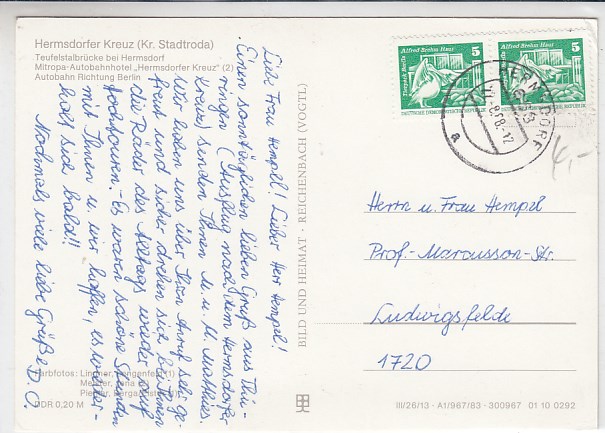 Hermsdorfer Kreuz (Kr. Stadtroda)
Teufelstalbrücke bei Hermsdorf
Mitropa-Autobahnhotel „Hermsdorfer Kreuz" (2)
Autobahn Richtung Berlin
Liebe Frau Hempel! Lieber Herr Hempel!
Einen sonntäglichen lieben Gruß aus Thü-
ringen (Ausflug nach dem Hermsdorfer
Kreuz) senden Ihnen M. u. M. Matthies.
Wir haben uns über Ihren Anruf sehr ge-
freut und sicher drehen sich bei Ihnen
die Räder des Alltags wieder auf
Hochtouren. Es waren schöne Stunden
mit Ihnen u. wir hoffen, es wieder-
holt sich bald!!
Nochmals viele liebe Grüße D. O.
Farbfotos:
DDR 0,20 M
BILD UND HEIMAT · REICHENBACH (VOGTL)
Alfred Brehm Haus 5
Tierpark Berlin
DEUTSCHE DEMOKRATISCHE REPUBLIK
Alfred Brehm Haus 5
DEUTSCHE DEMOKRATISCHE REPUBLIK
HERMSDORF
6530
-12
a
4,-
Herrn u. Frau Hempel
Prof.-Marcusson-Str.
Ludwigsfelde
1720
III/26/13 - A1/967/83 - 300967 01 10 0292